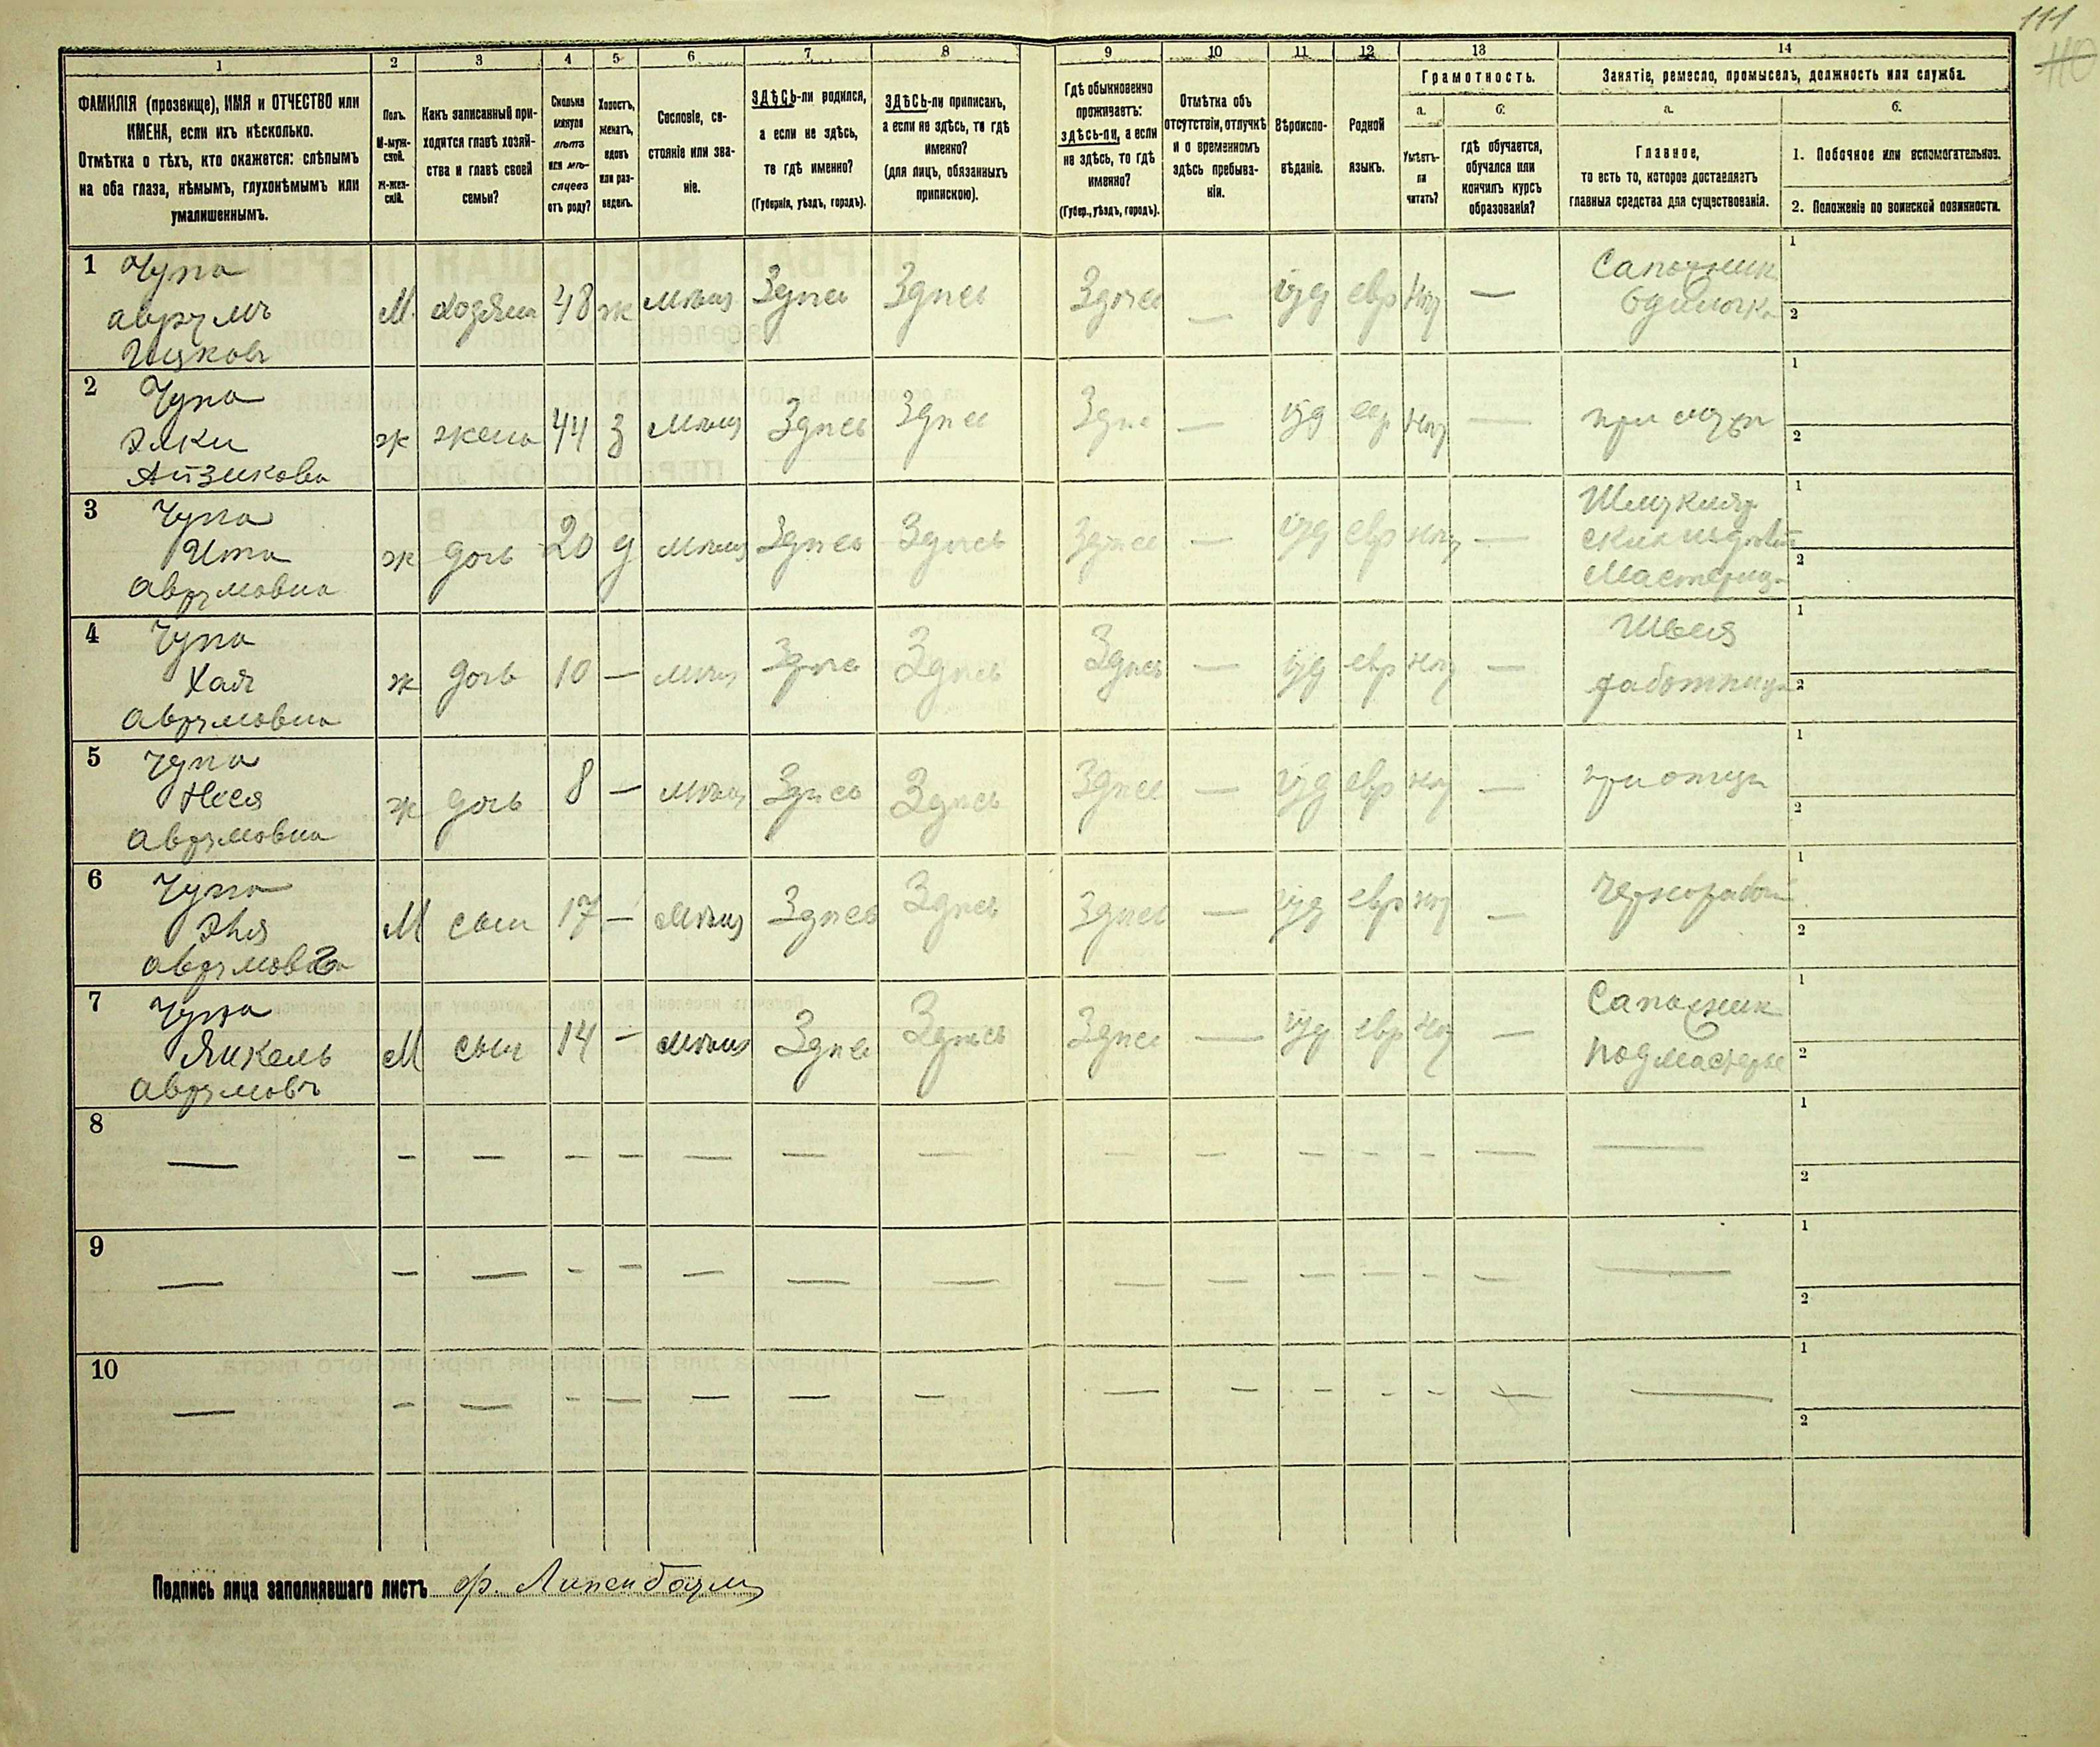 111
110
1 2 3 4 5 6 7 8 9 10 11 12 13 14
ФАМИЛІЯ (прозвище), ИМЯ и ОТЧЕСТВО или
ИМЕНА, если ихъ нѣсколько.
Отмѣтка о тѣхъ, кто окажется: слѣпымъ
на оба глаза, нѣмымъ, глухонѣмымъ или
умалишеннымъ.
Полъ.
М-муж-
ской.
ж-жен-
скій.
Какъ записанный при-
ходится главѣ хозяй-
ства и главѣ своей
семьи?
Сколько
минуло
лѣтъ
или мѣ-
сяцевъ
отъ роду?
Холостъ,
женатъ,
вдовъ
или раз-
веденъ.
Сословіе, со-
стояніе или зва-
ніе.
ЗДѢСЬ-ли родился,
а если не здѣсь,
то гдѣ именно?
(Губернія, уѣздъ, городъ).
ЗДѢСЬ-ли приписанъ,
а если не здѣсь, то гдѣ
именно?
(для лицъ, обязанныхъ
припискою).
Гдѣ обыкновенно
проживаетъ:
здѣсь-ли, а если
не здѣсь, то гдѣ
именно?
(Губер., уѣздъ, городъ).
Отмѣтка объ
отсутствіи, отлучкѣ
и о временномъ
здѣсь пребыва-
ніи.
Вѣроиспо-
вѣданіе.
Родной
языкъ.
Грамотность.
а.
Умѣетъ-
ли
читать?
б.
гдѣ обучается,
обучался или
кончилъ курсъ
образованія?
Занятіе, ремесло, промыселъ, должность или служба.
а.
Главное,
то есть то, которое доставляетъ
главныя средства для существованія.
б.
1. Побочное или вспомогательное.
2. Положеніе по воинской повинности.
1 Чупа
Аврумъ
Ицковъ
М хозяин 48 ж мѣщ Здѣсь Здѣсь Здѣсь — іуд евр нѣт —
Сапожник
Одиночка
1
2
2 Чупа
Элки
Айзикова
ж жена 44 з мѣщ Здѣсь Здѣсь Здѣсь — іуд евр нѣт —
при мужѣ
1
2
3 Чупа
Ита
Аврумовна
ж дочь 20 д мѣщ Здѣсь Здѣсь Здѣсь — іуд евр нѣт —
Мастериц
1
2
4 Чупа
Хая
Аврумовна
ж дочь 10 — мѣщ Здѣсь Здѣсь Здѣсь — іуд евр нѣт —
Швея
работница
1
2
5 Чупа
Неся
Аврумовна
ж дочь 8 — мѣщ Здѣсь Здѣсь Здѣсь — іуд евр нѣт —
при отцѣ
1
2
6 Чупа
Эля
Аврумовъ
М сын 17 — мѣщ Здѣсь Здѣсь Здѣсь — іуд евр нѣт —
Чернорабоч
1
2
7 Чупа
Янкель
Аврумовъ
М сын 14 — мѣщ Здѣсь Здѣсь Здѣсь — іуд евр нѣт —
Сапожник
подмастерье
1
2
8 — — — — — — — — — — — — — — —
1
2
9 — — — — — — — — — — — — — — —
1
2
10 — — — — — — — — — — — — — — —
1
2
Подпись лица заполнявшаго листъ